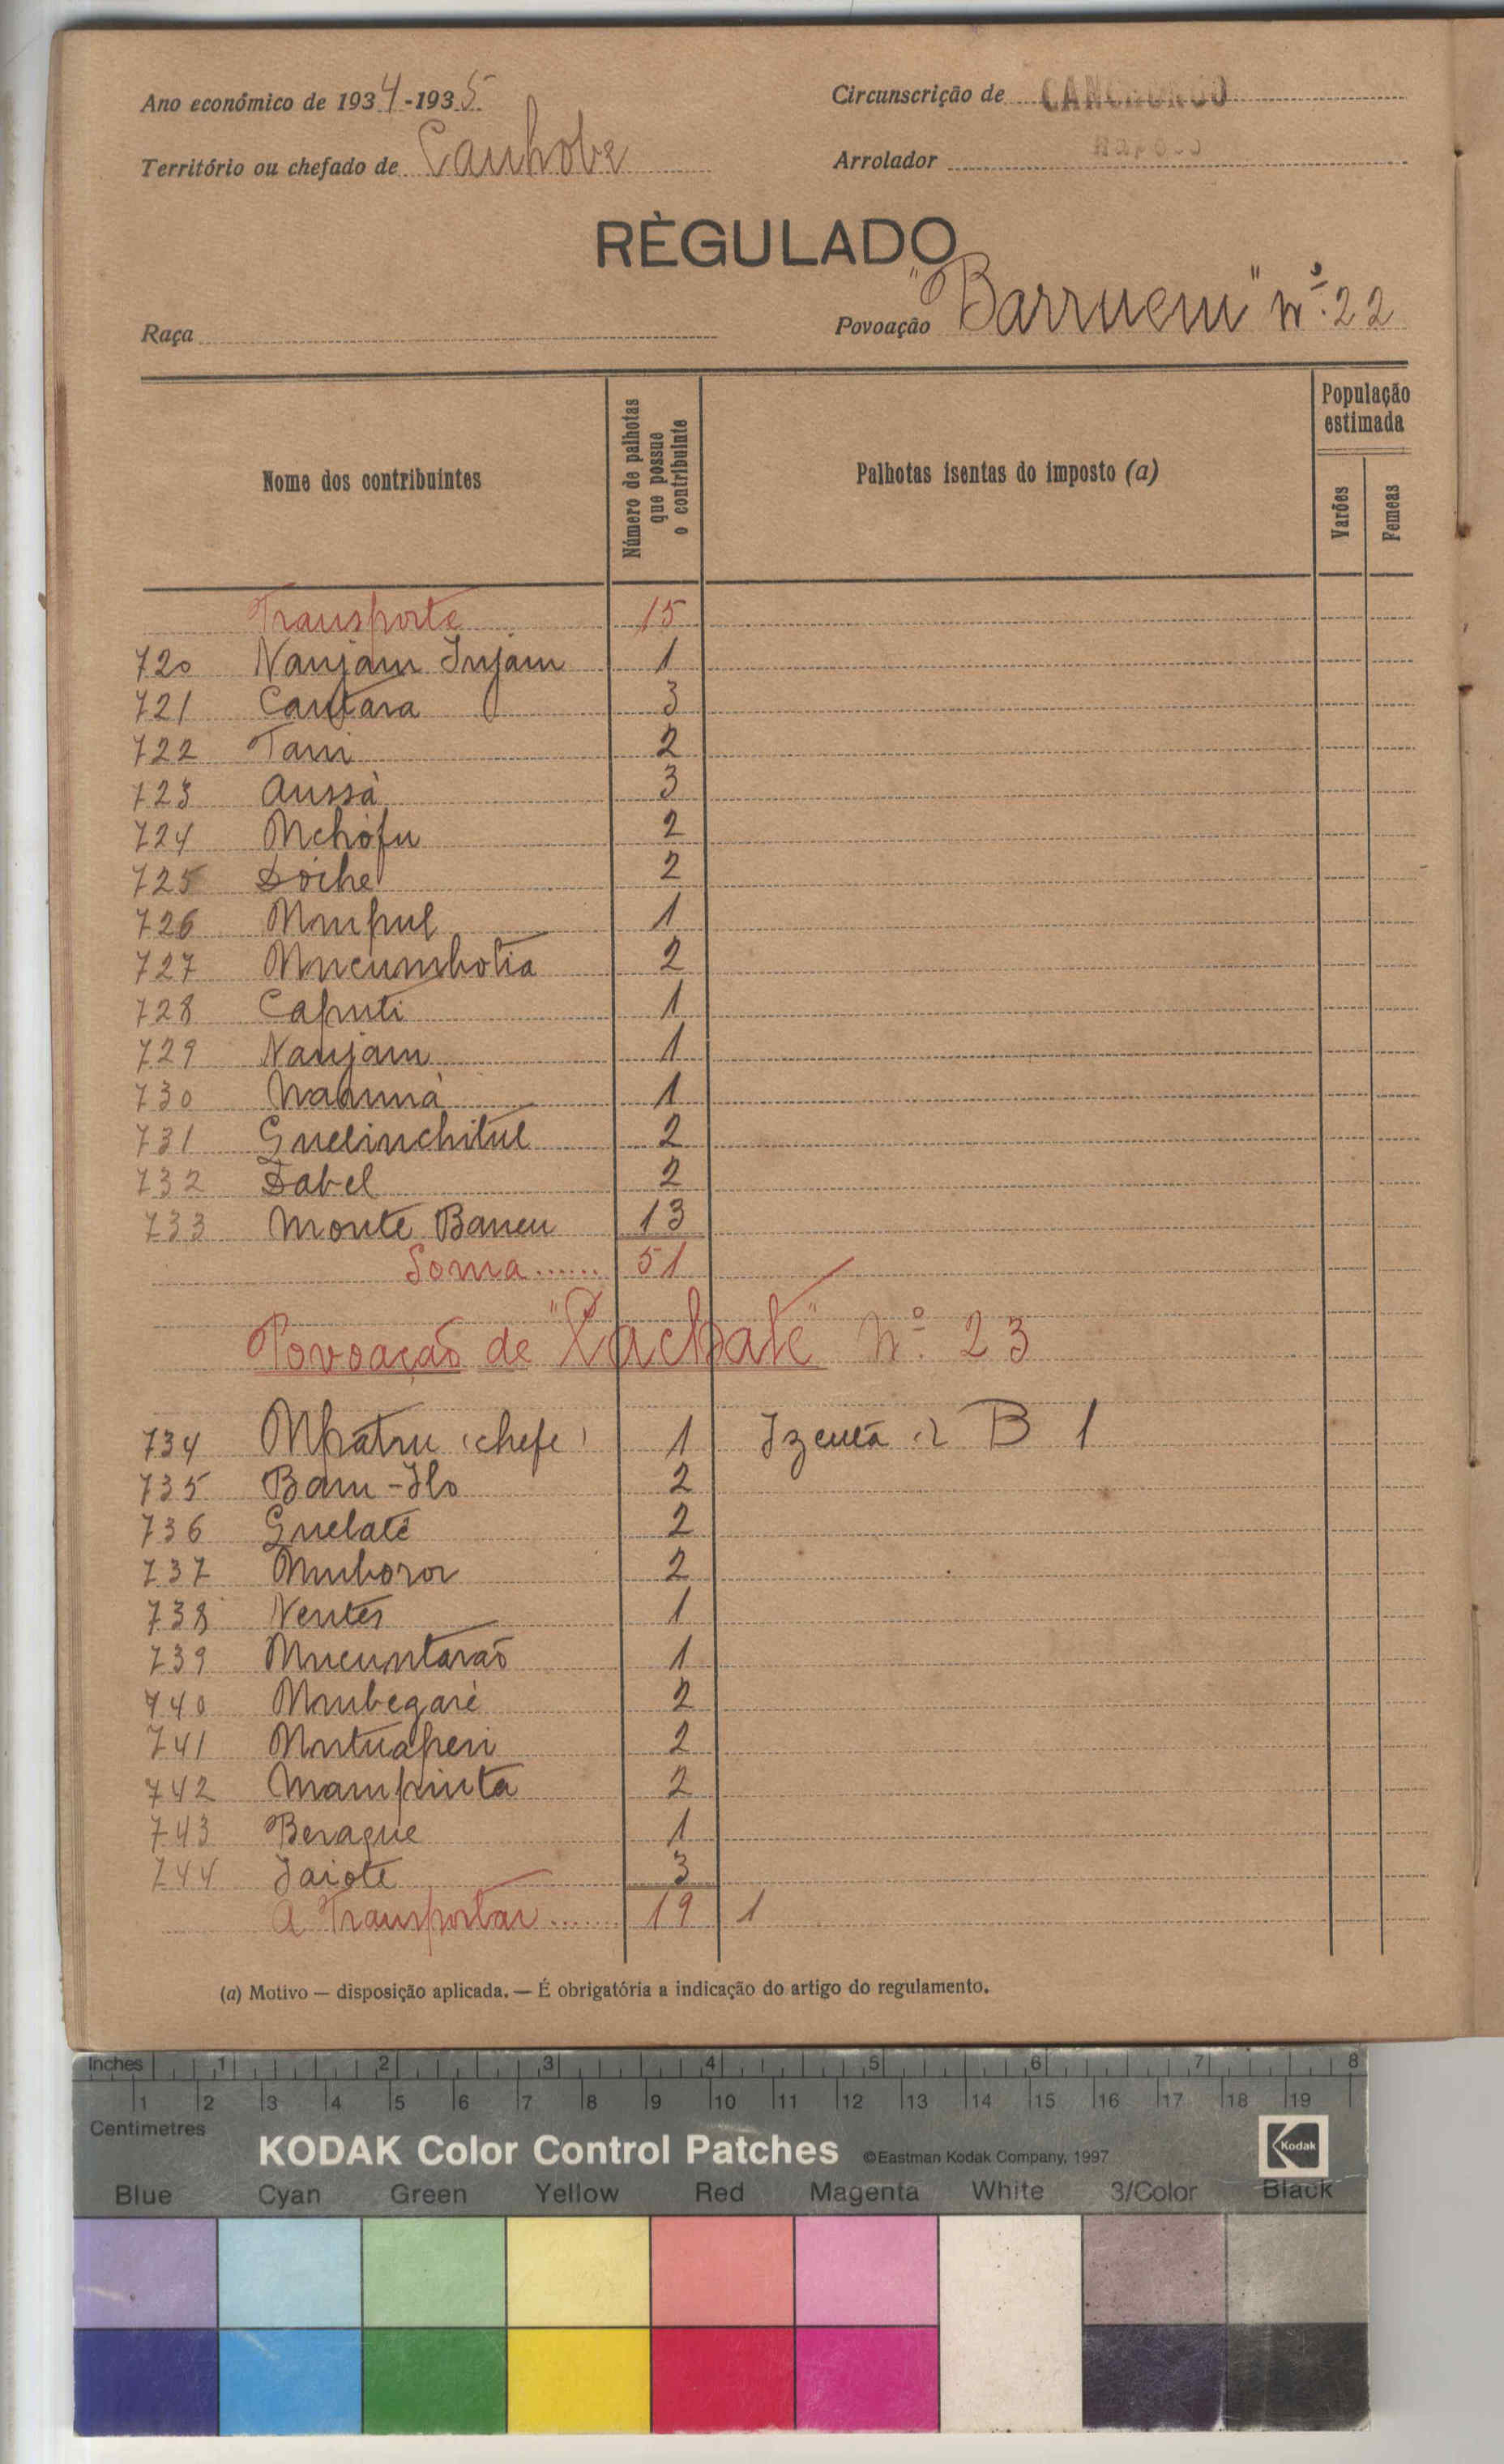 Ano económico de 1934-1935
Circunscrição de CANCHUNGO
Território ou chefado de Canhobe
Arrolador
RÈGULADO
Raça
Povoação "Barruem" nº 22
Nome dos contribuintes
Número de palhotas que possue o contribuinte
Palhotas isentas do imposto (a)
População estimada
Varões
Femeas
Transporte 15
720 Nanjam Injam 1
721 Cantara 3
722 Tam 2
723 Aussà 3
724 Mchófu 2
725 Dóche 2
726 Mmpul 1
727 Mucumbotia 2
728 Caputi 1
729 Nanjam 1
730 1
731 Guelinchitul 2
732 Dabel 2
733 Monte Baneu 13
Soma ...... 51
Povoação de "Cachaté" Nº 23
734 Mpátru (chefe) 1 B 1
735 Bam-Ilo 2
736 Guelaté 2
737 Muboror 2
738 Nentes 1
739 Mucuntarão 1
740 Mubegaré 2
741 Mutuapen 2
742 Mampinta 2
743 Beraque 1
744 Jaiote 3
A Transportar ...... 19 1
(a) Motivo — disposição aplicada. — É obrigatória a indicação do artigo do regulamento.
Inches 1 2 3 4 5 6 7 8
1 2 3 4 5 6 7 8 9 10 11 12 13 14 15 16 17 18 19
Centimetres
KODAK Color Control Patches ©Eastman Kodak Company, 1997 Kodak
Blue Cyan Green Yellow Red Magenta White 3/Color Black